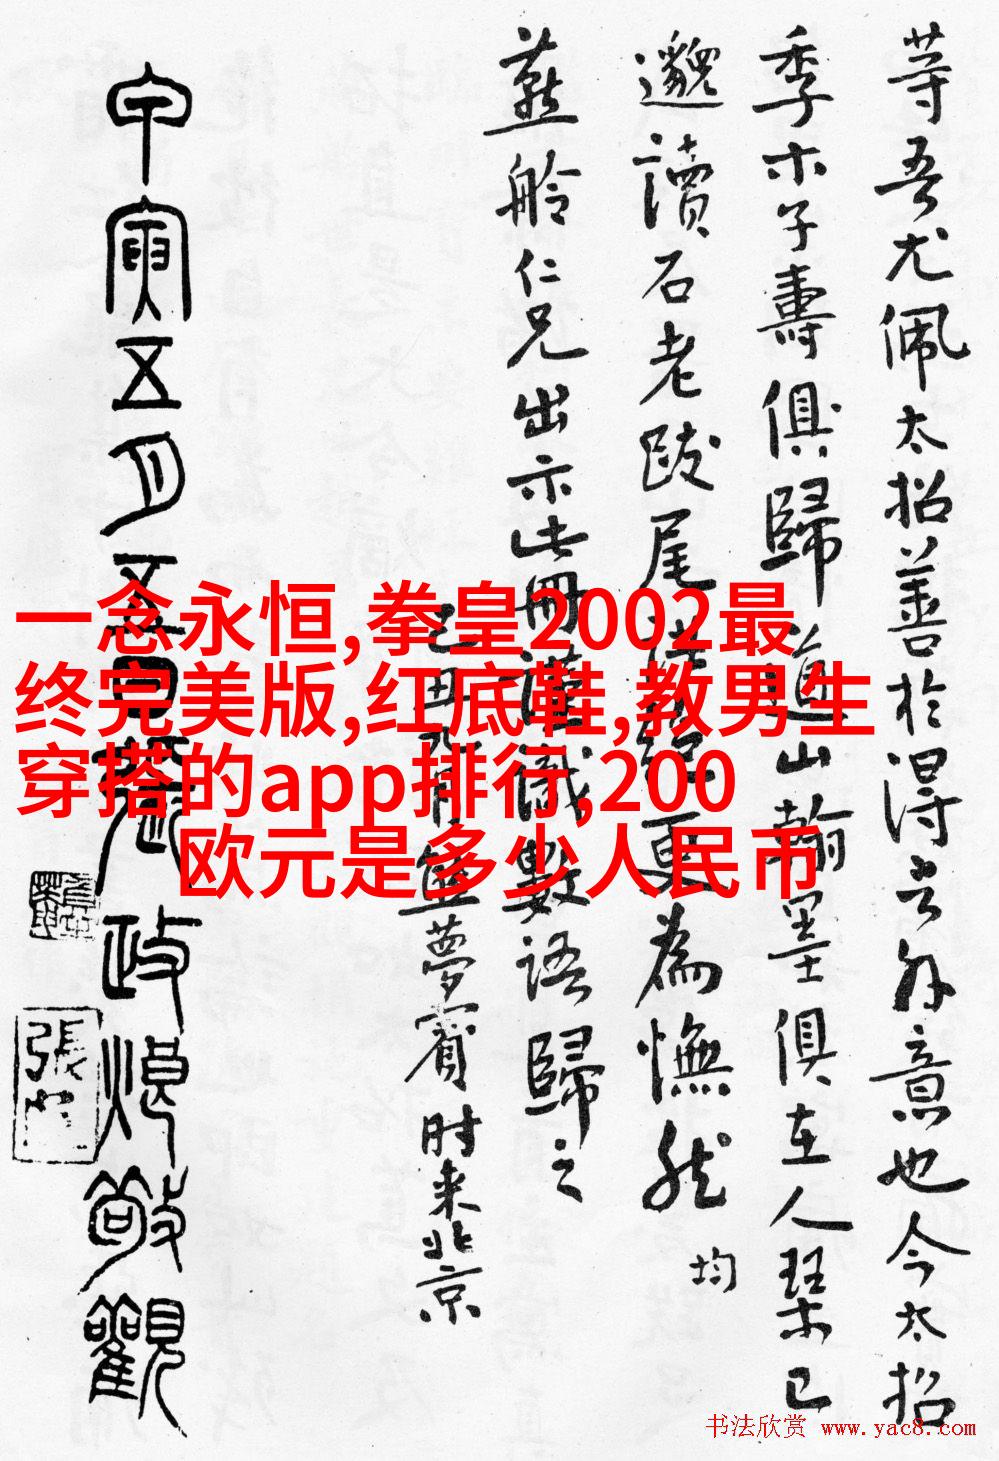 等吾尤佩太招善於得言外意也今太招
季木子壽俱歸道山翰墨俱在人琴已
邈讀石老跋尾
更為憮然 均
燕舲仁兄出示此冊謹識數語歸之
己丑
盦夢賓時来北京
甲寅五月
政煜敬觀
張
一念永恒,拳皇2002最
终完美版,红底鞋,教男生
穿搭的app排行,200
欧元是多少人民币
书法欣赏 www.yac8.com